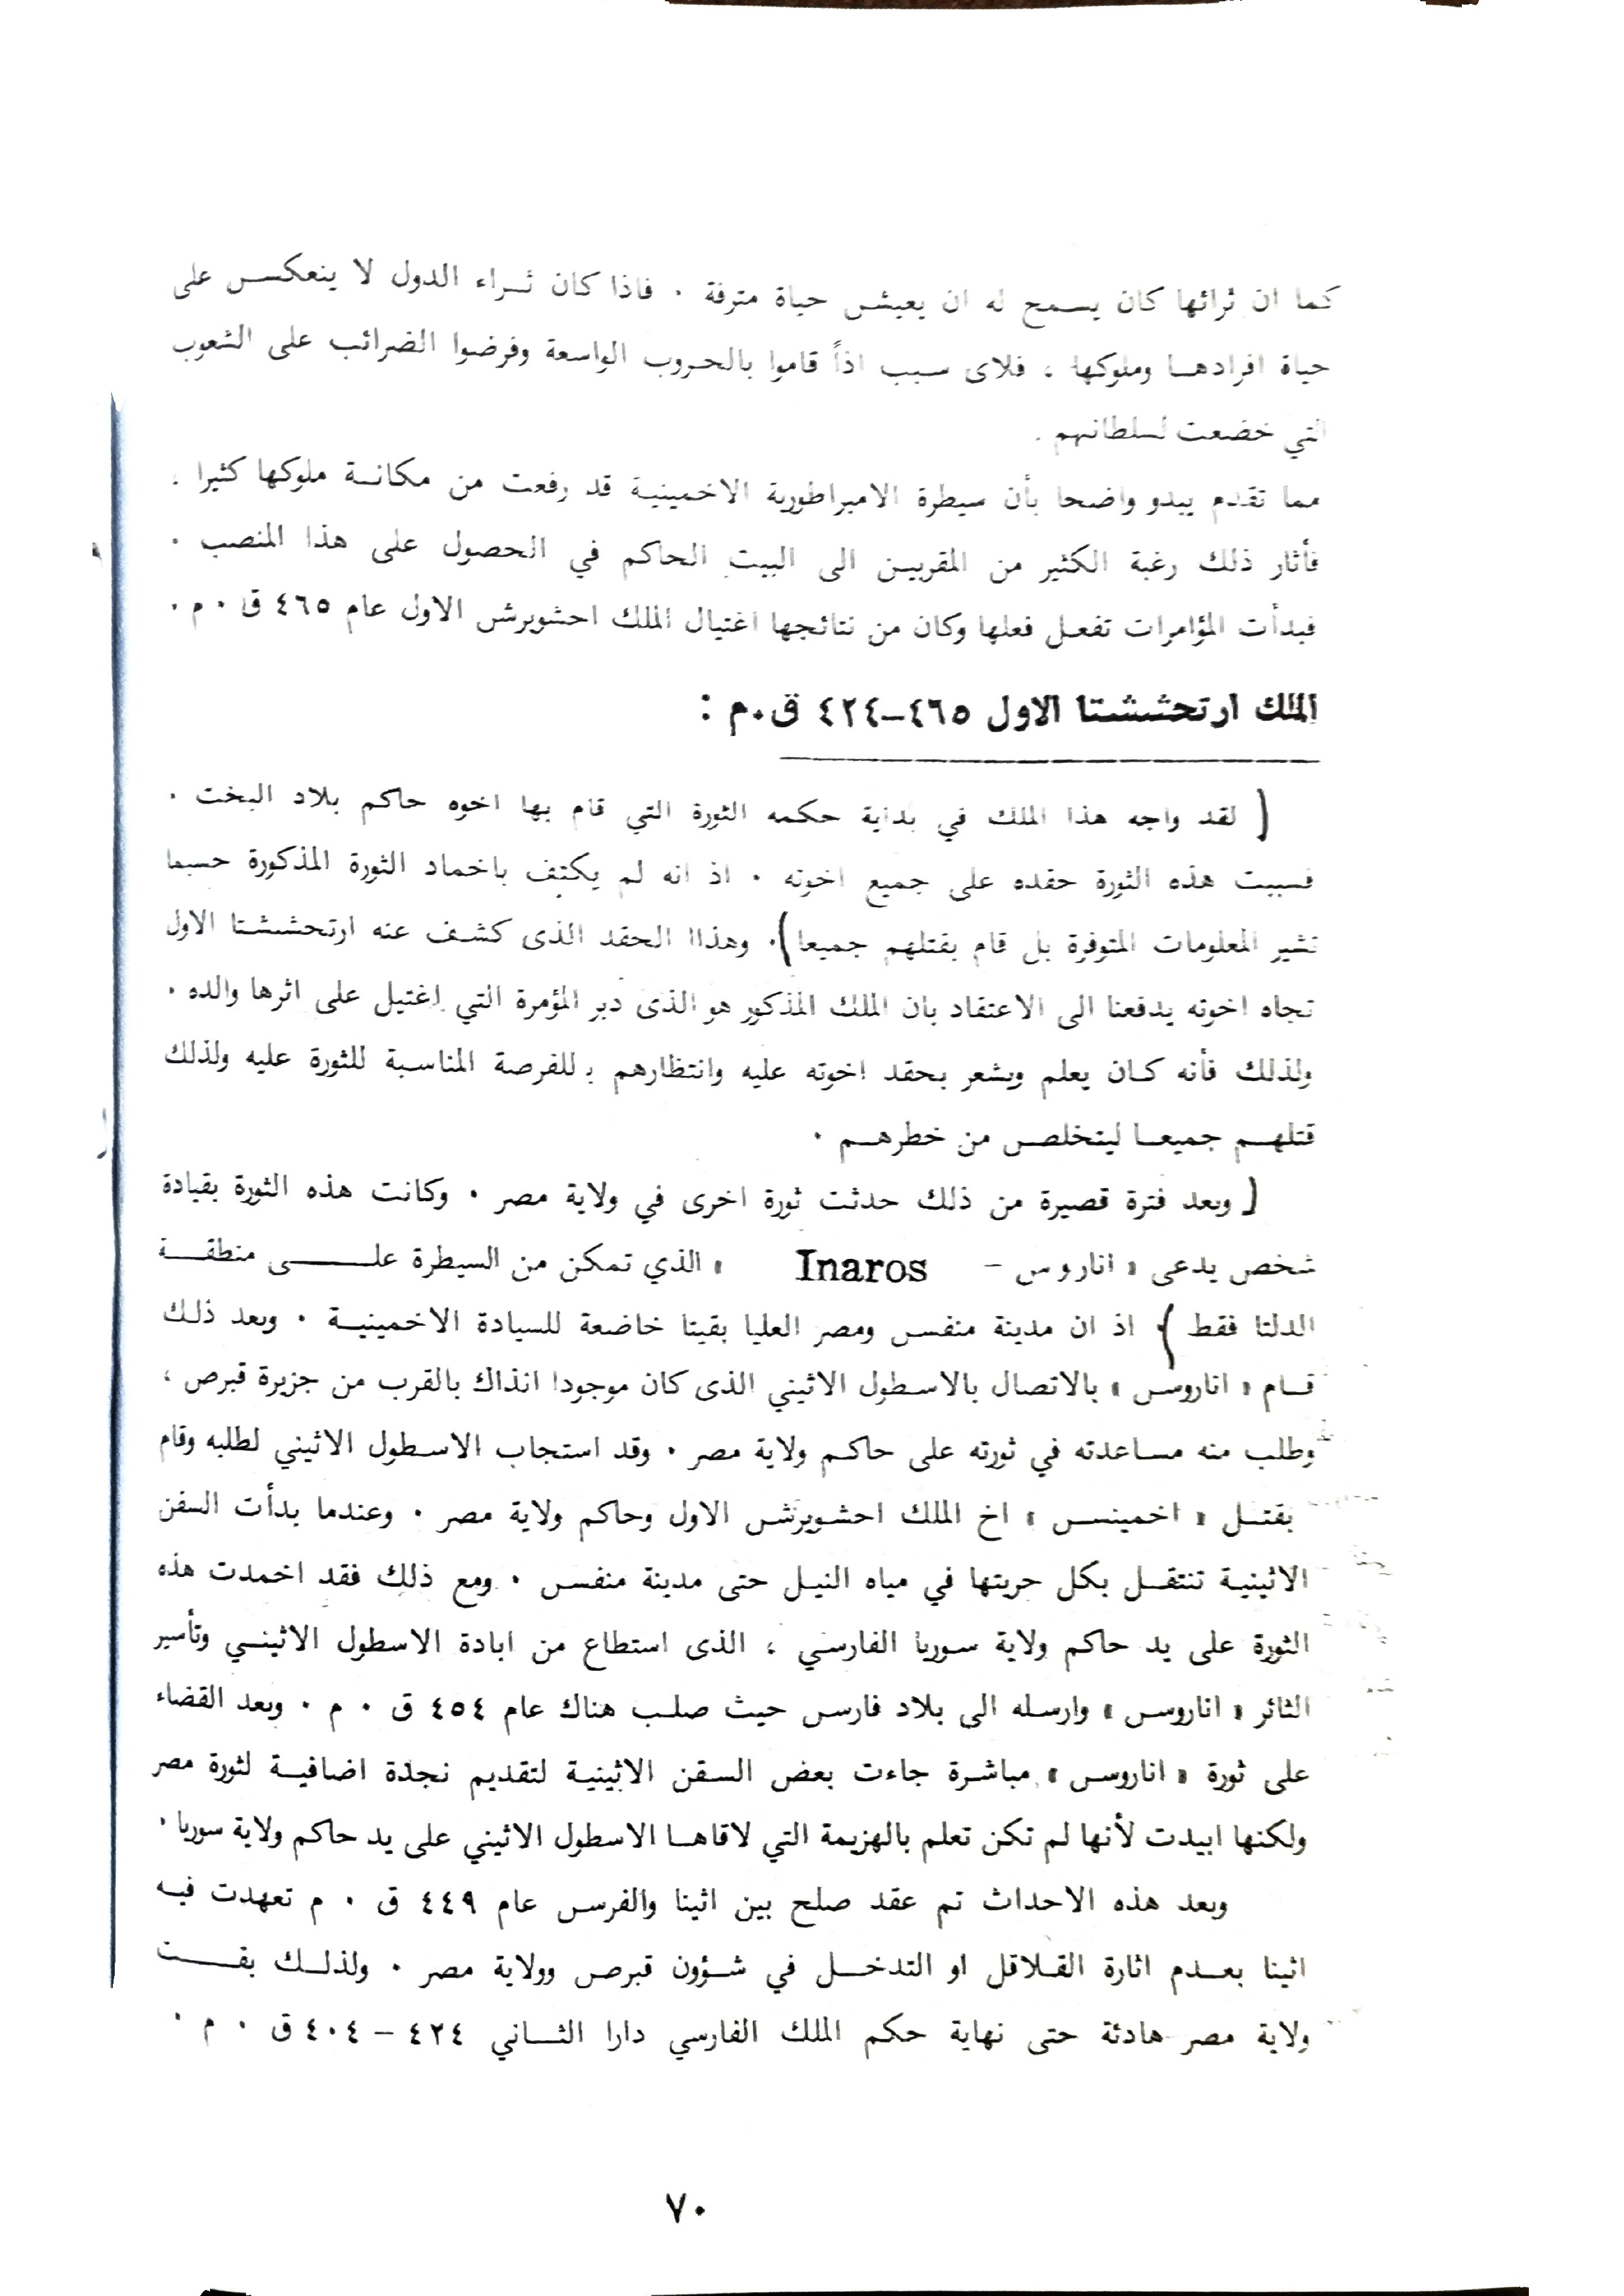 كما ان ثرائها كان يسمح له ان يعيش حياة مترفة . فاذا كان ثراء الدول لا ينعكس على
حياة افرادها وملوكها ، فلاى سبب اذاً قاموا بالحروب الواسعة وفرضوا الضرائب على الشعوب
التي خضعت لسلطانهم .
مما تقدم يبدو واضحا بأن سيطرة الامبراطورية الاخمينية قد رفعت من مكانة ملوكها كثيرا .
فأثار ذلك رغبة الكثير من المقربين الى البيت الحاكم في الحصول على هذا المنصب .
فبدأت المؤامرات تفعل فعلها وكان من نتائجها اغتيال الملك احشويرش الاول عام ٤٦٥ ق . م .
الملك ارتحششتا الاول ٤٦٥–٤٢٤ ق.م :
( لقد واجه هذا الملك في بداية حكمه الثورة التي قام بها اخوه حاكم بلاد البخت .
فسببت هذه الثورة حقده على جميع اخوته . اذ انه لم يكتف باخماد الثورة المذكورة حسبما
تشير المعلومات المتوفرة بل قام بقتلهم جميعا) . وهذاا الحقد الذى كشف عنه ارتحششتا الاول
تجاه اخوته يدفعنا الى الاعتقاد بان الملك المذكور هو الذى دبر المؤمرة التي اغتيل على اثرها والده .
ولذلك فأنه كان يعلم ويشعر بحقد اخوته عليه وانتظارهم للفرصة المناسبة للثورة عليه ولذلك
قتلهم جميعا ليتخلص من خطرهم .
( وبعد فترة قصيرة من ذلك حدثت ثورة اخرى في ولاية مصر . وكانت هذه الثورة بقيادة
شخص يدعى « اناروس – Inaros » الذي تمكن من السيطرة على منطقة
الدلتا فقط ) . اذ ان مدينة منفس ومصر العليا بقيتا خاضعة للسيادة الاخمينية . وبعد ذلك
قام « اناروس » بالاتصال بالاسطول الاثيني الذى كان موجودا انذاك بالقرب من جزيرة قبرص ،
وطلب منه مساعدته في ثورته على حاكم ولاية مصر . وقد استجاب الاسطول الاثيني لطلبه وقام
بقتل « اخمينس » اخ الملك احشويرش الاول وحاكم ولاية مصر . وعندما بدأت السفن
الاثينية تنتقل بكل حريتها في مياه النيل حتى مدينة منفس . ومع ذلك فقد اخمدت هذه
الثورة على يد حاكم ولاية سوريا الفارسي ، الذى استطاع من ابادة الاسطول الاثيني وتأسير
الثائر « اناروس » وارسله الى بلاد فارس حيث صلب هناك عام ٤٥٤ ق . م . وبعد القضاء
على ثورة « اناروس » مباشرة جاءت بعض السقن الاثينية لتقديم نجدة اضافية لثورة مصر
ولكنها ابيدت لأنها لم تكن تعلم بالهزيمة التي لاقاها الاسطول الاثيني على يد حاكم ولاية سوريا .
وبعد هذه الاحداث تم عقد صلح بين اثينا والفرس عام ٤٤٩ ق . م تعهدت فيه
اثينا بعدم اثارة القلاقل او التدخل في شؤون قبرص وولاية مصر . ولذلك بقت
ولاية مصر هادئة حتى نهاية حكم الملك الفارسي دارا الثاني ٤٢٤ – ٤٠٤ ق . م .
٧٠